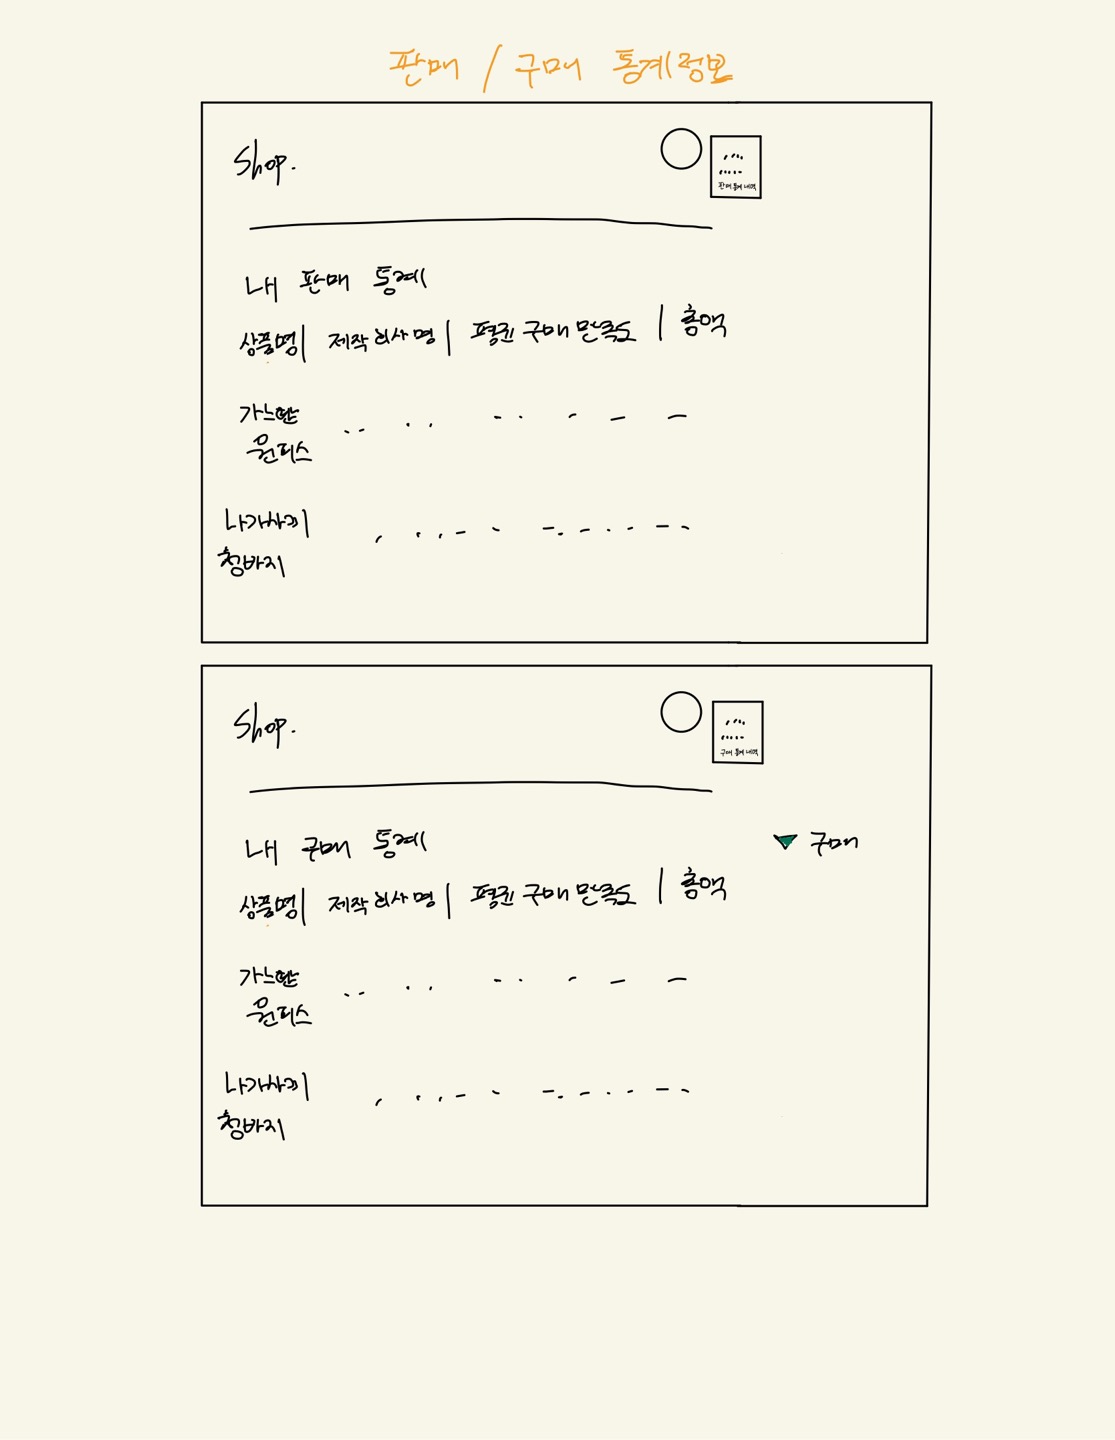 판매 / 구매 통계정보
Shop.
판매 통계 내역
내 판매 통계
상품명 | 제작 회사명 | 평균 구매 만족도 | 총액
가느란
원피스
나가사끼
청바지
Shop.
구매 통계 내역
내 구매 통계
▼ 구매
상품명 | 제작 회사명 | 평균 구매 만족도 | 총액
가느란
원피스
나가사끼
청바지